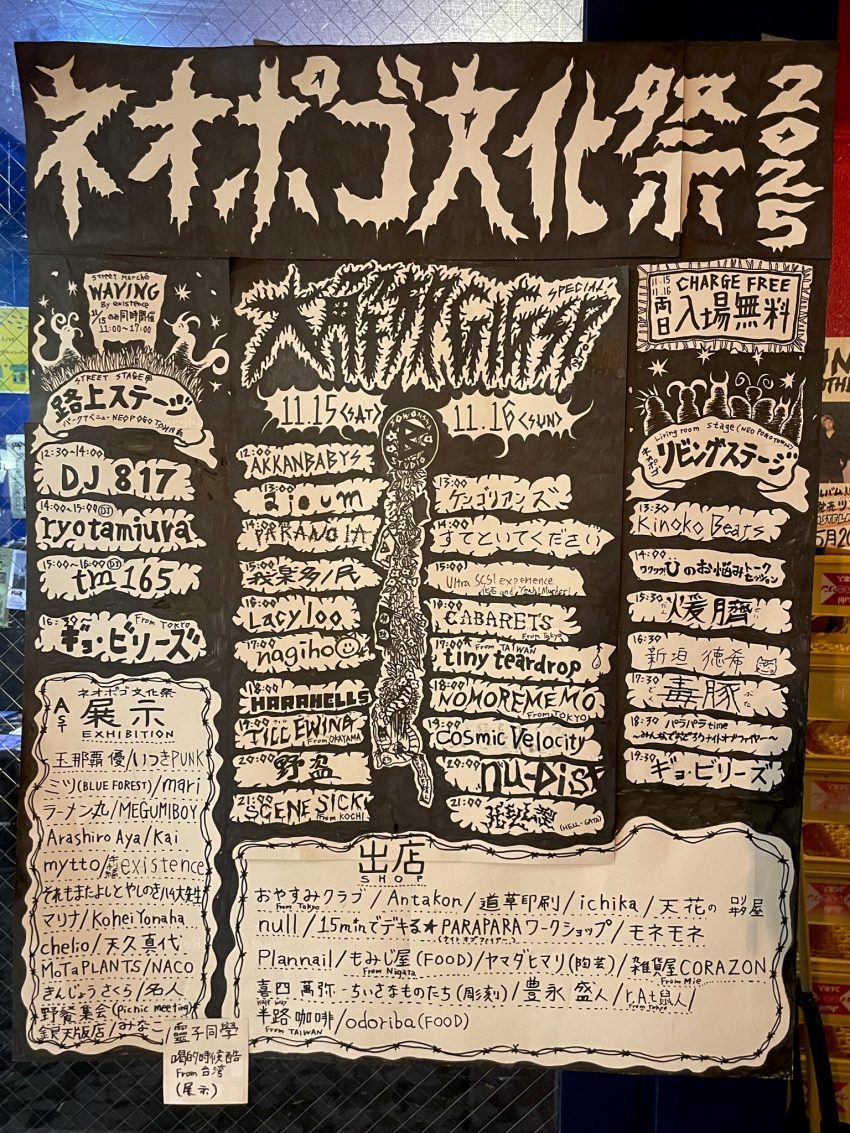 ネオポゴ文化祭 2025
Street Marché
WAVING
By existence
11/15のみ同時開催
11:00~17:00
STREET STAGE
路上ステージ
パークアベニュー NEO POGO TOWN前
12:30~14:00
DJ 817
14:00~15:00 DJ
ryotamiura
15:00~16:00 DJ
tm165
16:30~ From TOKYO
ギョ・ビリーズ
SPECIAL
11.15 (SAT)
12:00
AKKANBABYS
13:00
aioum
14:00
PARANOIA
15:00
我楽多ノ民
16:00
Lacyloo
17:00
nagiho
18:00
HARAHELLS
19:00
TILL EWING
From OKAYAMA
20:00
野盗
21:00
SCENE SICK
From KOCHI
11.16 (SUN)
13:00
ケンゴリアンズ
14:00
すてといてください
15:00
Ultra SCSI experience
16:00
CABARETS
From Tokyo
17:00 From TAIWAN
tiny teardrop
18:00
NOMOREMEMO
From TOKYO
19:00
Cosmic Velocity
20:00
nu-Dis
21:00
(HELL-GATA)
11.15
11.16
両日
CHARGE FREE
入場無料
Living room stage (NEO POGO TOWN)
ネオポゴ リビングステージ
13:30
Kinoko Beats
14:00
ワクワク!ひのお悩みトークセッション
15:30
16:30
新垣 徳希
17:30
毒豚
18:30 パラパラtime
~みんなでおどろうナイトオブファイヤー~
19:30
ギョ・ビリーズ
ネオポゴ文化祭
展示
EXHIBITION
玉那覇 優/いつきPUNK
ミツ(BLUE FOREST)/mari
ラーメン丸/MEGUMIBOY
Arashiro Aya/Kai
mytto/existence
それもまたよしとやしのきハイ大先生
マリナ/Kohei Yonaha
chelio/天久真代
MoTaPLANTS/NACO
きんじょうさくら/名人
野饗集会(picnic meeting)
銀天版店/みなこ/靈子同學
喝的時候酷
From 台湾
(展示)
出店
SHOP
おやすみクラブ/Antakon/道草印刷/ichika/天花の 彫屋
From Tokyo
null/15minでデキる★PARAPARA ワークショップ/モネモネ
(ナイトオブファイヤー)
Plannail/もみじ屋(FOOD)/ヤマダヒマリ(陶芸)/雑貨屋CORAZON
From Niigata
From Mie
喜四 萬弥-ちいさなものたち(彫刻)/豊永 盛人/r.At鼠人/
From Tokyo
half way
半路咖啡/odoriba(FOOD)
From TAIWAN